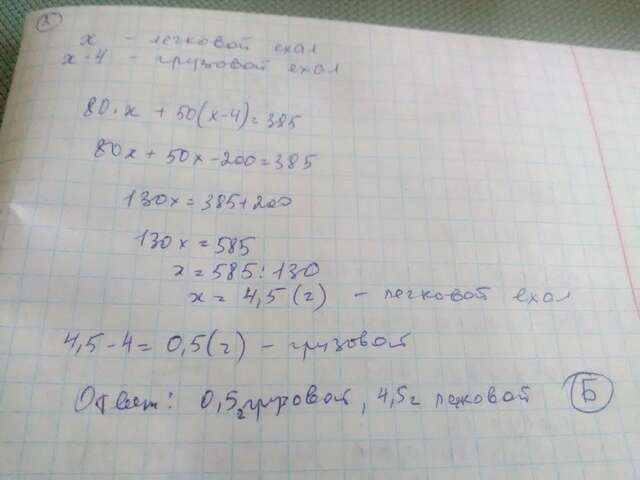 3
x - легковой ехал
x-4 - грузовой ехал
80·x + 50(x-4)=385
80x + 50x -200=385
130x = 385+200
130x = 585
x = 585:130
x = 4,5 (г) - легковой ехал
4,5-4= 0,5(г) - грузовой
Ответ: 0,5г грузовой, 4,5г легковой Б